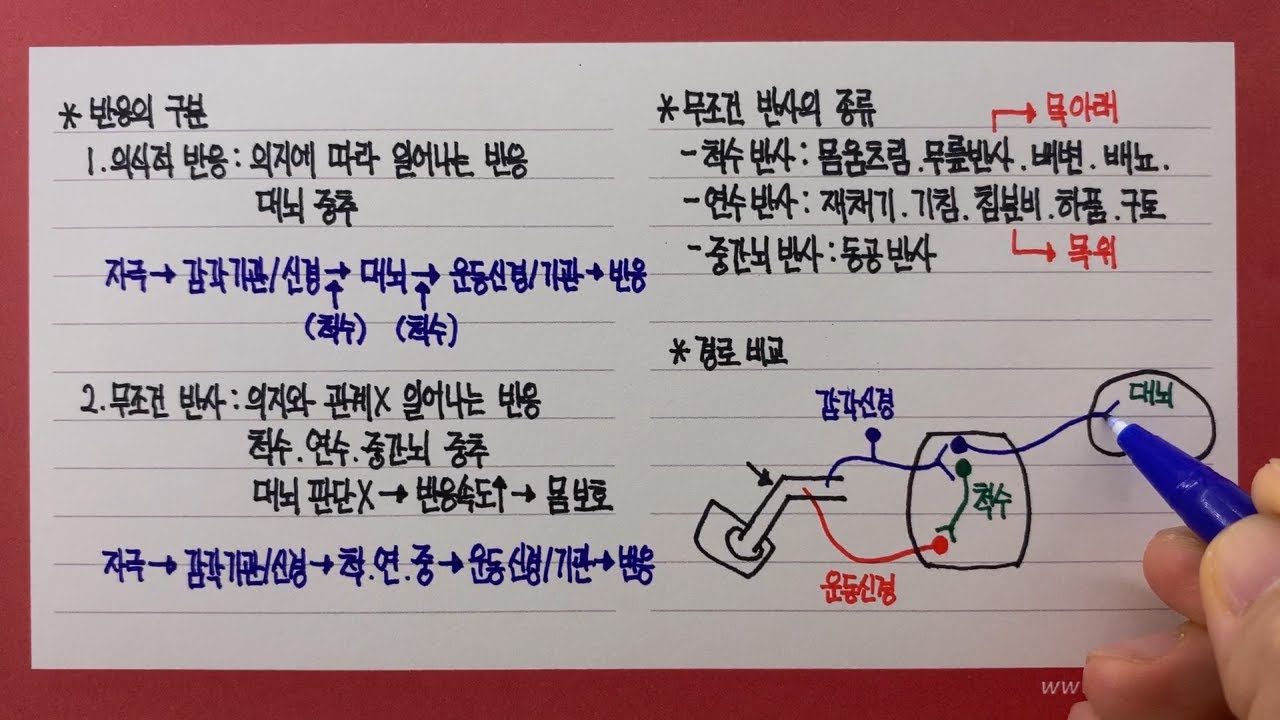 * 반응의 구분
1. 의식적 반응 : 의지에 따라 일어나는 반응
대뇌 중추
자극 → 감각기관/신경 → 대뇌 → 운동신경/기관 → 반응
(척수) (척수)
2. 무조건 반사 : 의지와 관계X 일어나는 반응
척수 . 연수 . 중간뇌 중추
대뇌 판단X → 반응속도↑ → 몸 보호
자극 → 감각기관/신경 → 척 . 연 . 중 → 운동신경/기관 → 반응
* 무조건 반사의 종류
목아래
- 척수 반사 : 몸움츠림 . 무릎반사 . 배변 . 배뇨 .
- 연수 반사 : 재채기 . 기침 . 침분비 . 하품 . 구토
- 중간뇌 반사 : 동공반사
목위
* 경로 비교
대뇌
감각신경
척수
운동신경
www.